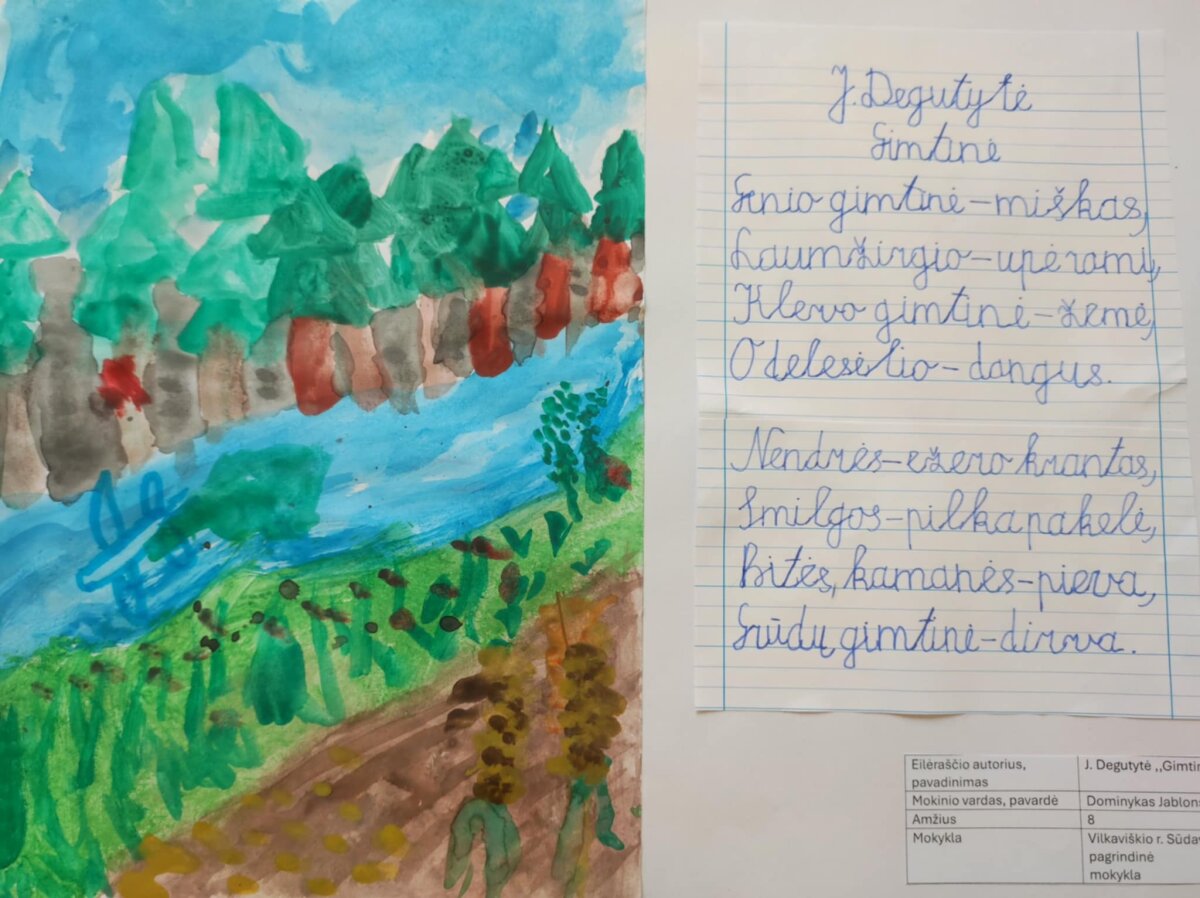 J. Degutytė
Gimtinė
Genio gimtinė – miškas,
Laumžirgio – upė ramį,
Klevo gimtinė – žemė,
O delesėlio – dangus.
Nendrės – ežero krantas,
Smilgos – pilka pakelė,
Bitės, kamanės – pieva,
Grūdų gimtinė – dirva.
Eilėraščio autorius, J. Degutytė ,,Gimtin
pavadinimas
Mokinio vardas, pavardė Dominykas Jablons
Amžius 8
Mokykla Vilkaviškio r. Sūdav
pagrindinė
mokykla